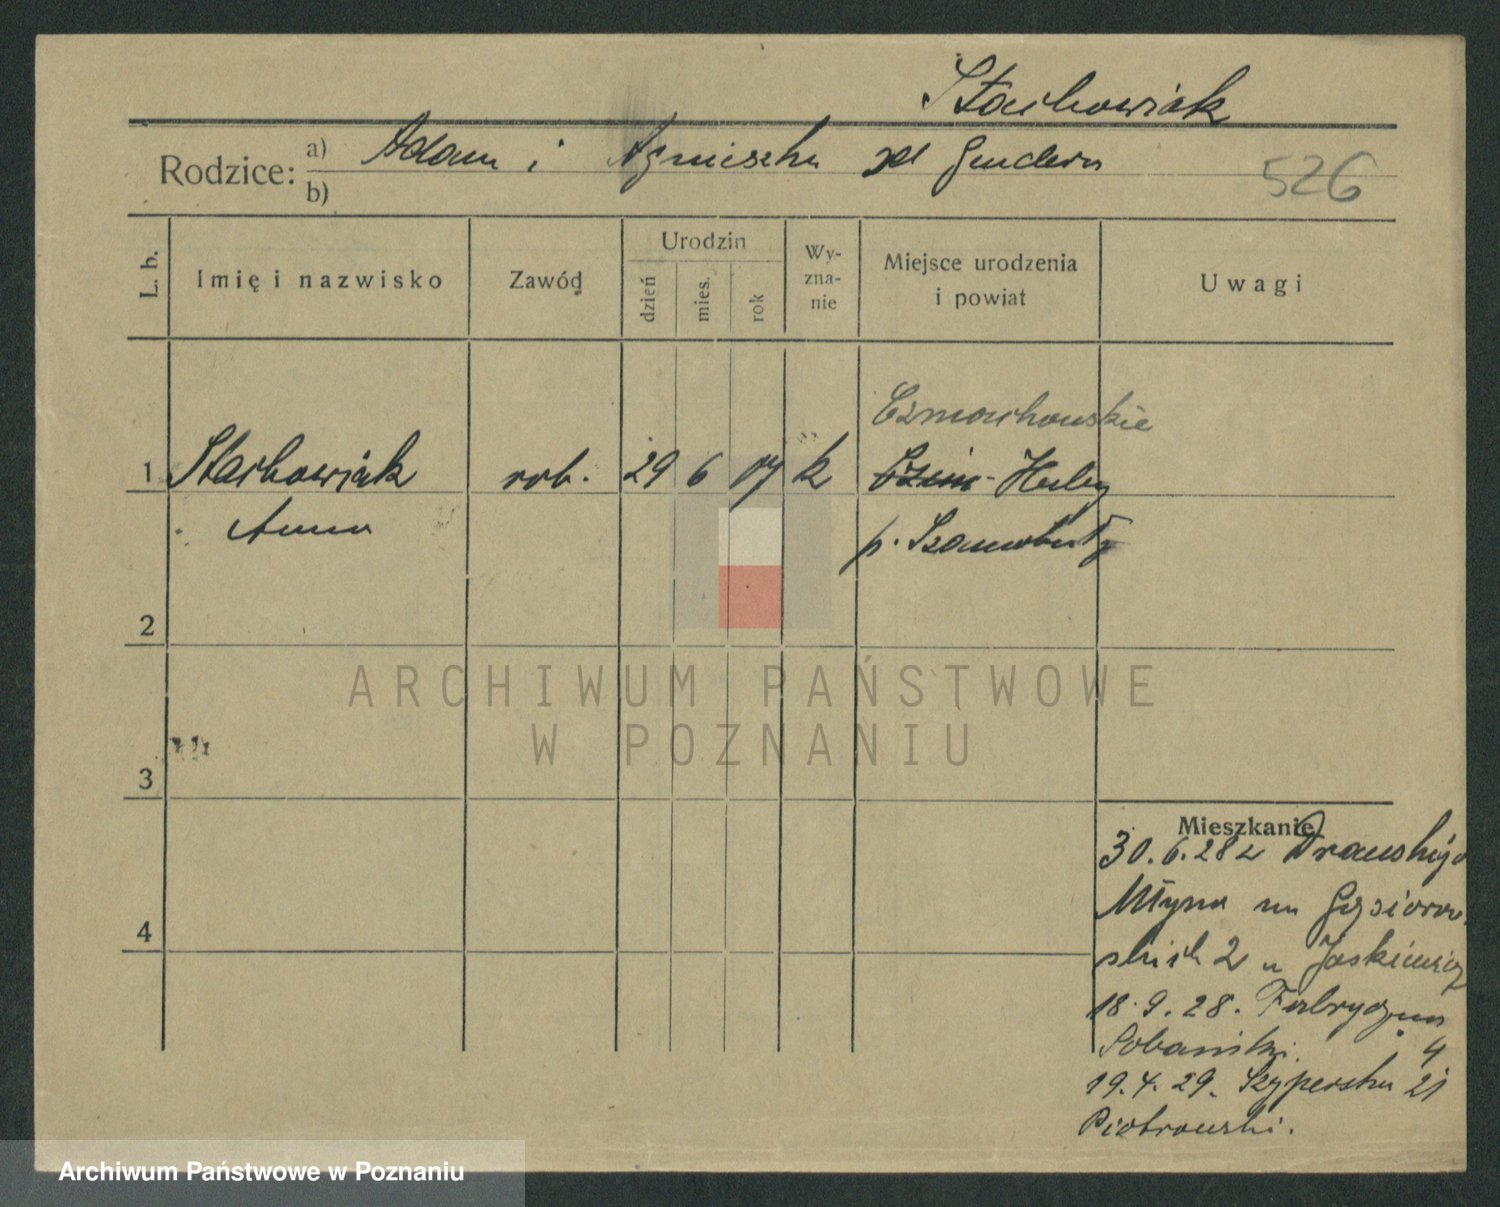 Stachowiak
Rodzice: a) Adam i Agnieszka zd Gendera
b)
526
L. b.
Imię i nazwisko
Zawód
Urodzin
dzień
mies.
rok
Wy-
zna-
nie
Miejsce urodzenia
i powiat
Uwagi
Czmachowskie
1 Stachowiak rob. 29 6 07 k Huby
Anna p. Szamotuły
2
ARCHIWUM PAŃSTWOWE
W POZNANIU
3
Mieszkanie
30.6.28 z
4
Młyna
2 u Jaskiewicz
18.9.28. Fabryczna
Sobański. 4
19.4.29. Szyperska 21
Piotrowski.
Archiwum Państwowe w Poznaniu